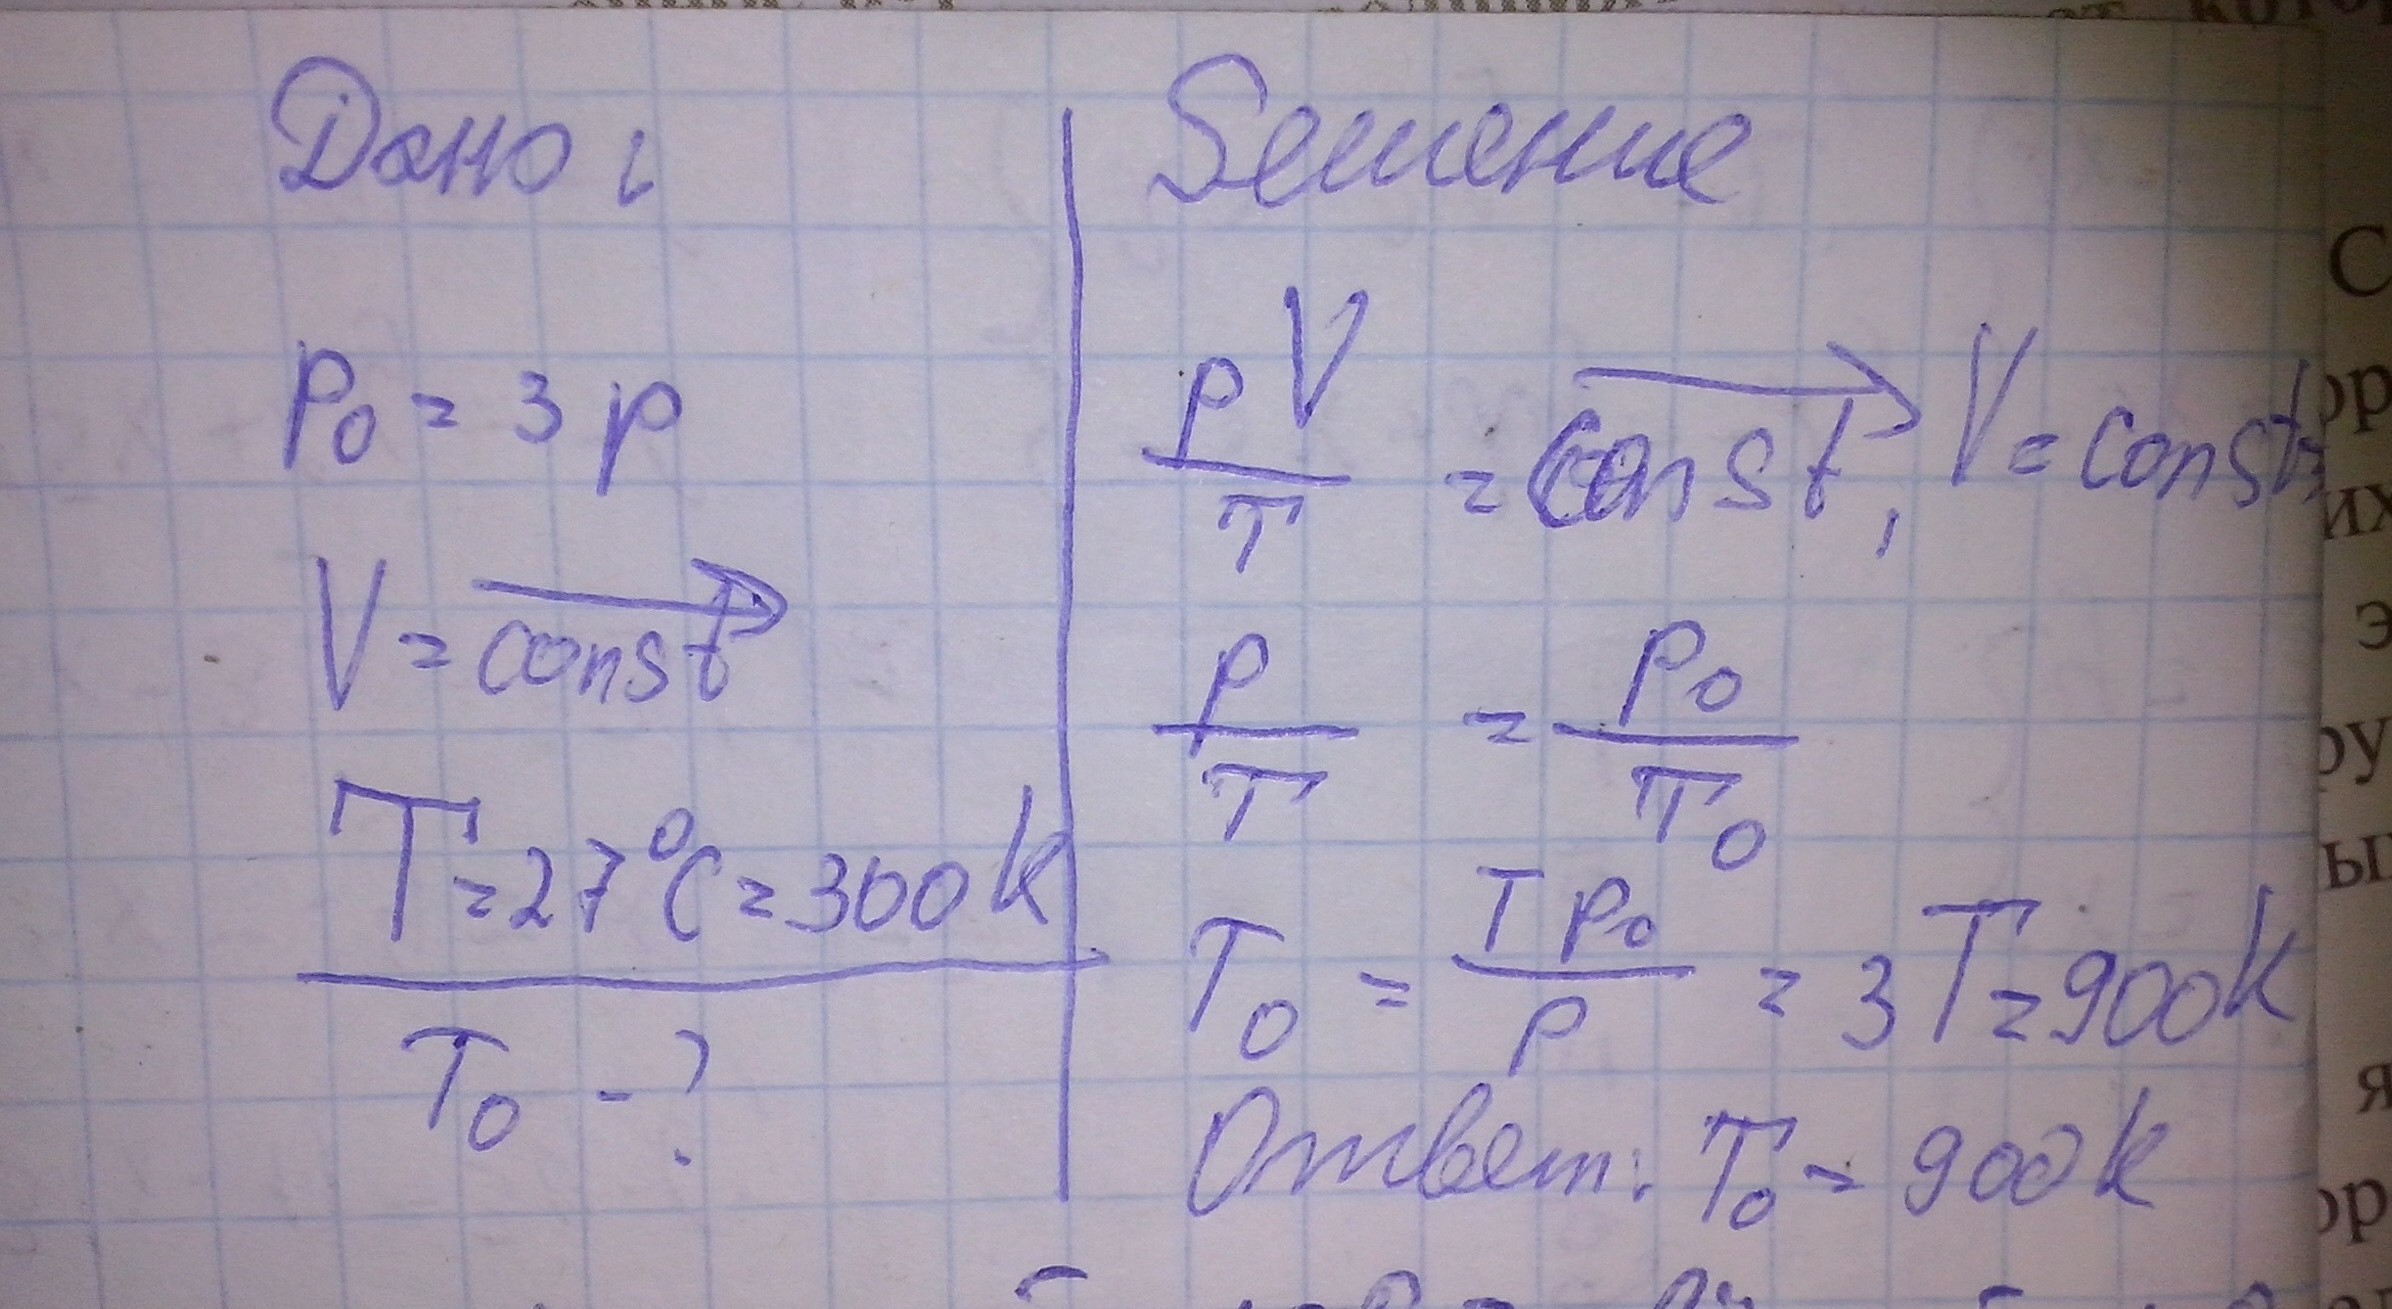 Дано:
p₀ = 3p
V = const
T = 27°C = 300K
T₀ - ?
Решение
pV/T = const, V = const
p/T = p₀/T₀
T₀ = Tp₀/p = 3T = 900K
Ответ: T₀ = 900K